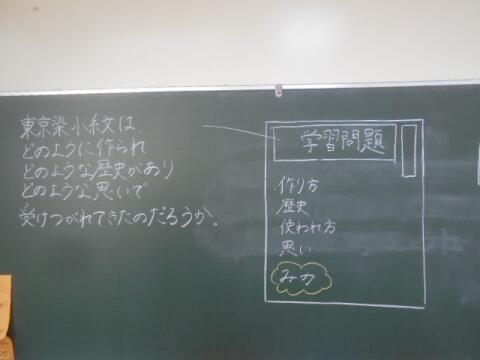 東京染小紋は、
どのように作られ
どのような歴史があり
どのような思いで
受けつがれてきたのだろうか。
学習問題
作り方
歴史
使われ方
思い
みの